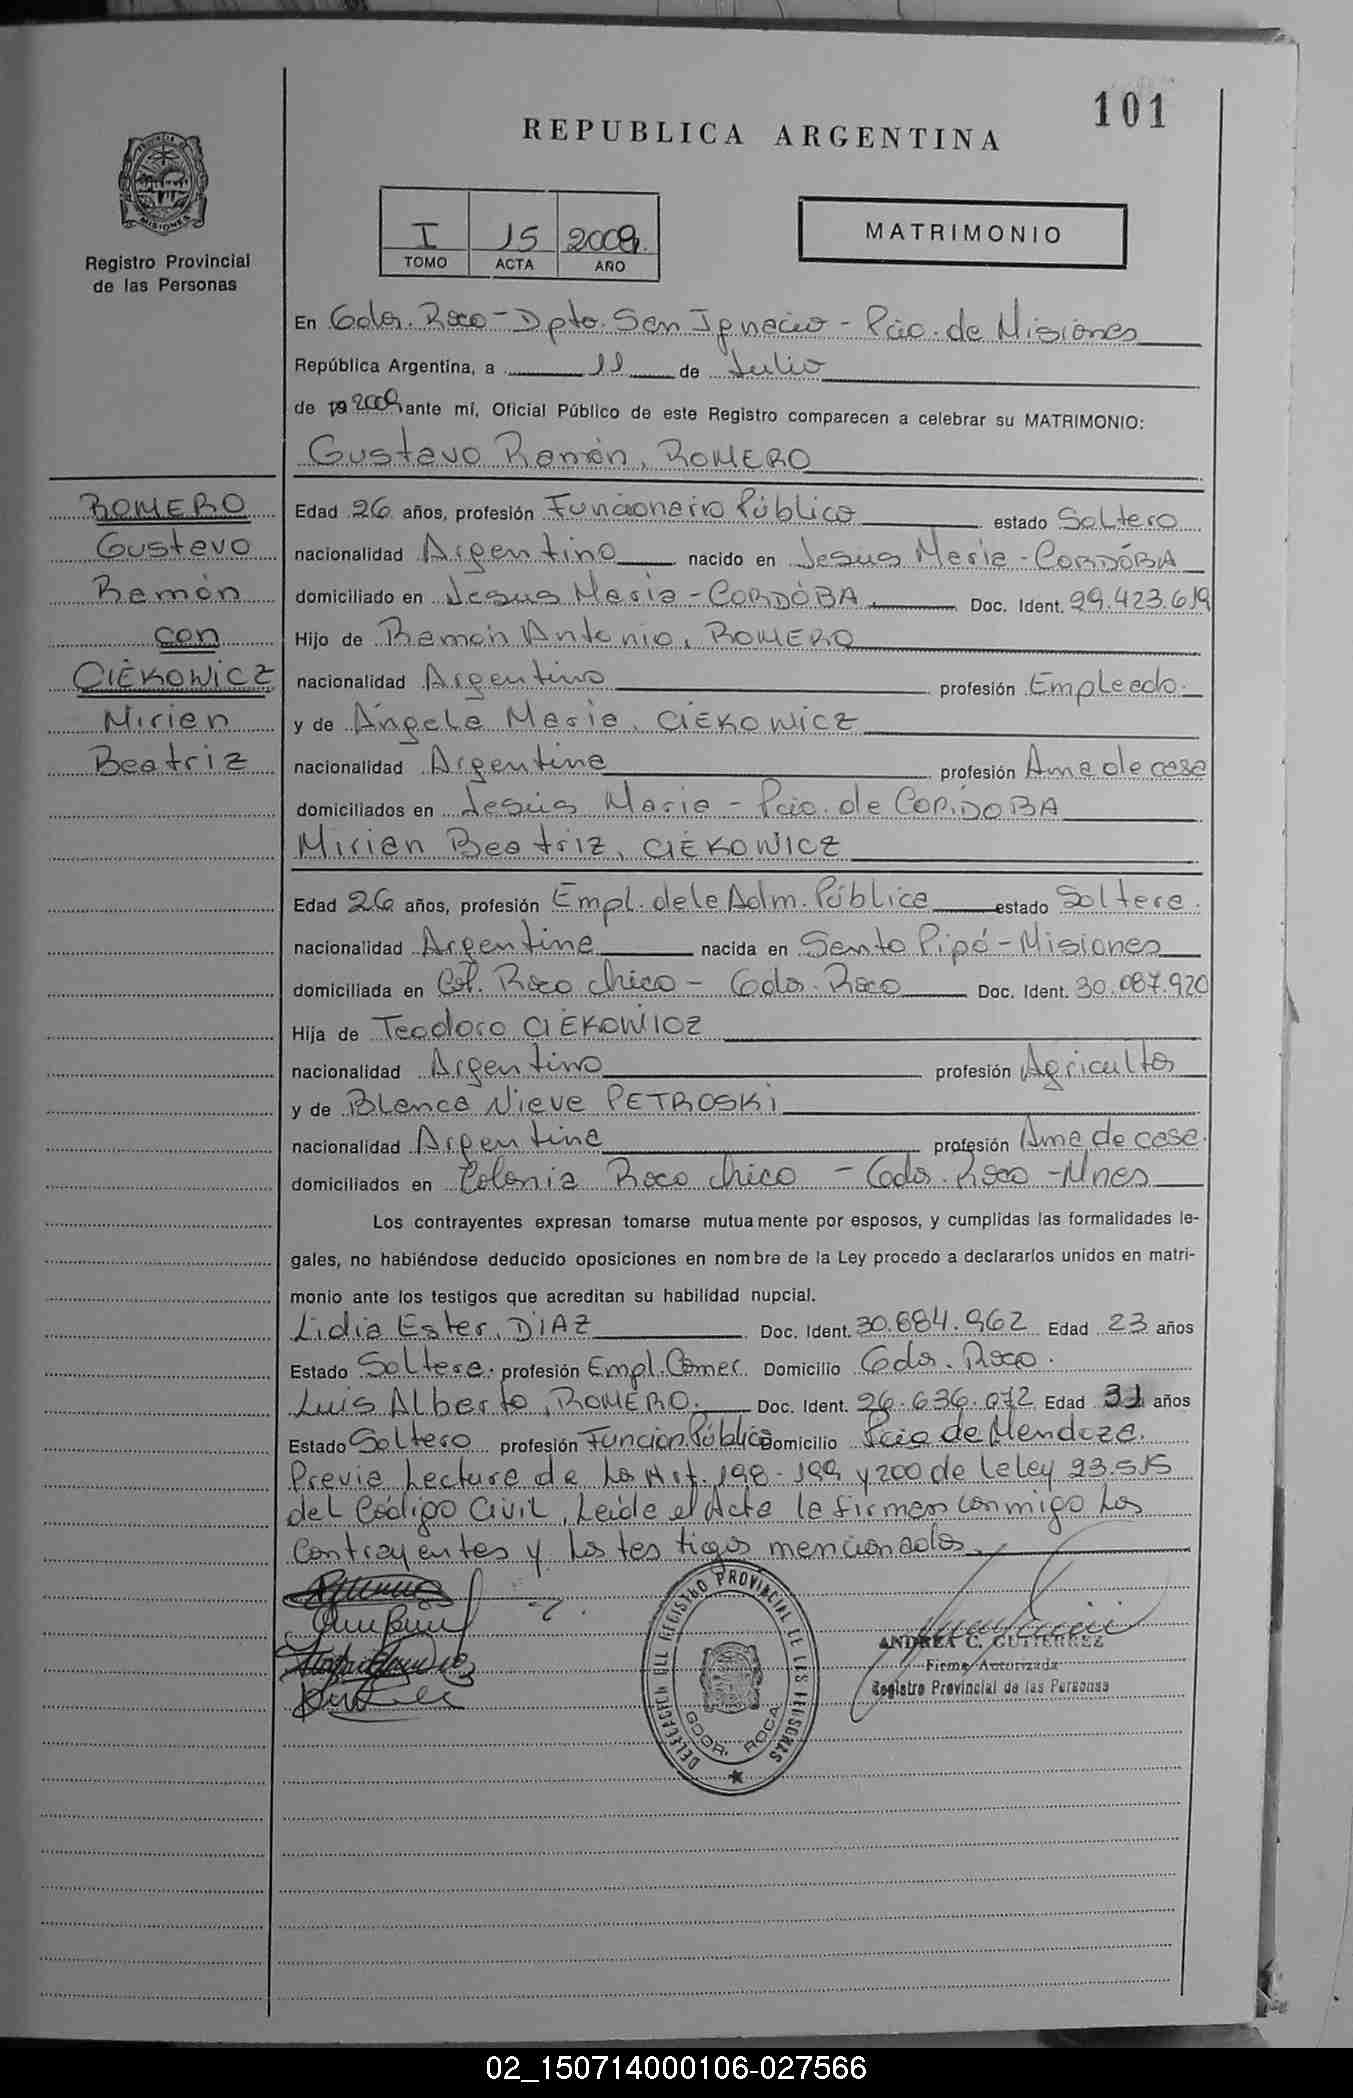 101
REPUBLICA ARGENTINA
PROVINCIA DE
MISIONES
Registro Provincial
de las Personas
I 15 2009.
TOMO ACTA AÑO
MATRIMONIO
En Gdor. Roca - Dpto. San Ignacio - Pcia. de Misiones
República Argentina, a 11 de Julio
de 19 2009 ante mí, Oficial Público de este Registro comparecen a celebrar su MATRIMONIO:
Gustavo Ramón, ROMERO
ROMERO
Gustavo
Ramón
con
CIEKOWICZ
Mirien
Beatriz
Edad 26 años, profesión Funcionario Público estado Soltero
nacionalidad Argentino nacido en Jesús María - CORDÓBA
domiciliado en Jesus María - CORDÓBA Doc. Ident. 29.423.619
Hijo de Ramón Antonio, ROMERO
nacionalidad Argentino profesión Empleado.
y de Ángela María, CIEKOWICZ
nacionalidad Argentina profesión Ama de casa
domiciliados en Jesús María - Pcia. de CORDOBA
Mirien Beatriz, CIEKOWICZ
Edad 26 años, profesión Empl. de la Adm. Pública estado Soltera.
nacionalidad Argentina nacida en Santo Pipó - Misiones
domiciliada en Col. Roca chica - Gdor. Roca Doc. Ident. 30.087.920
Hija de Teodoro CIEKOWICZ
nacionalidad Argentino profesión Agricultor
y de Blanca Nieve PETROSKI
nacionalidad Argentina profesión Ama de casa.
domiciliados en Colonia Roca chica - Gdor. Roca - Mnes
Los contrayentes expresan tomarse mutuamente por esposos, y cumplidas las formalidades le-
gales, no habiéndose deducido oposiciones en nombre de la Ley procedo a declararlos unidos en matri-
monio ante los testigos que acreditan su habilidad nupcial.
Lidia Ester, DIAZ Doc. Ident. 30.684.962 Edad 23 años
Estado Soltera. profesión Empl. Comer. Domicilio Gdor. Roca.
Luis Alberto, ROMERO. Doc. Ident. 26.636.072 Edad 31 años
Estado Soltero profesión Funcion. Público Domicilio Pcia de Mendoza.
Previa Lectura de los Art. 198-199 y 200 de la ley 23.515
del Código Civil, Leída el Acta la firman conmigo los
Contrayentes y los testigos mencionados.
DELEGACION DEL REGISTRO PROVINCIAL DE LAS PERSONAS
GDOR. ROCA
ANDREA C. GUTIERREZ
Firma Autorizada
Registro Provincial de las Personas
02_150714000106-027566